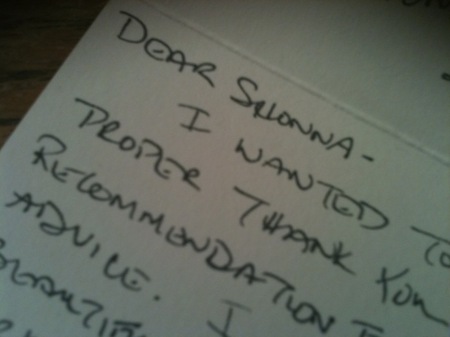 DEAR SHONNA-
I WANTED TO
PROPER THANK YOU
RECOMMENDATION
ADVICE. I